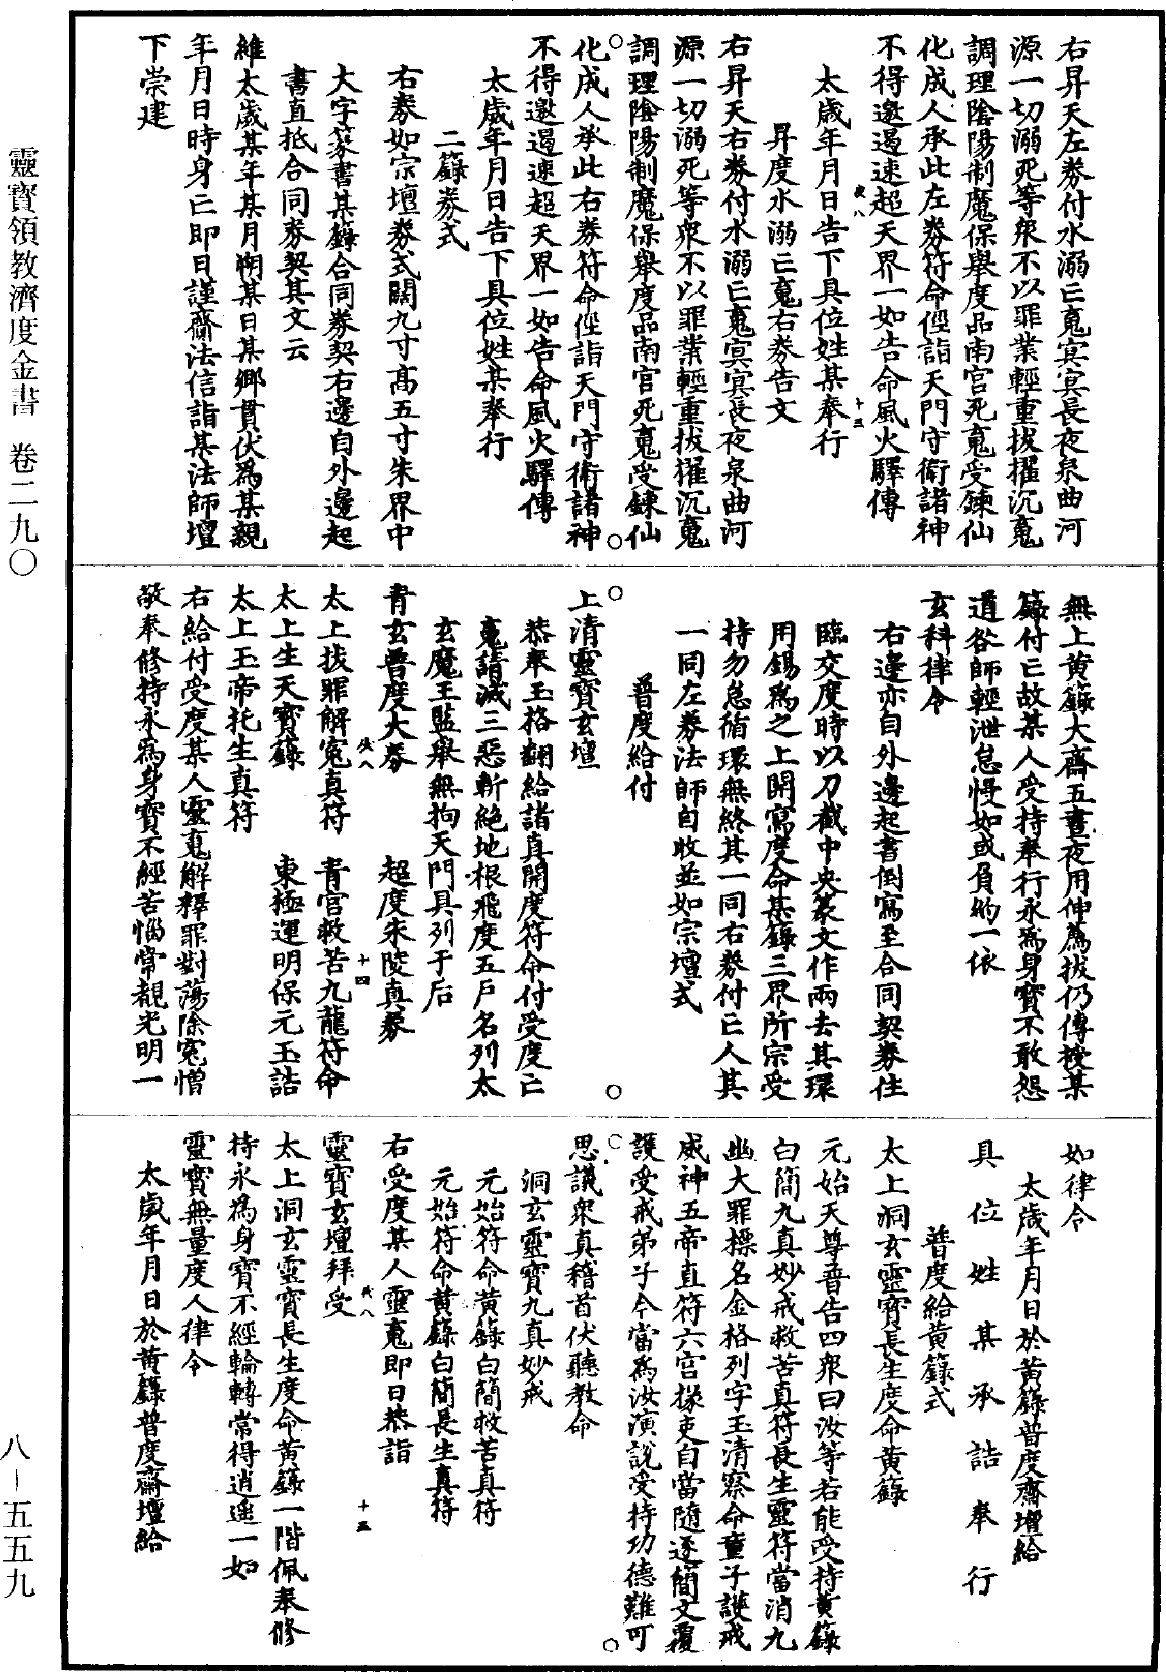 右昇天左券付水溺亡䰟㝠㝠長夜泉曲河
源一切溺死等衆不以罪業輕重拔擢沉䰟
調理隂陽制魔保舉度品南宫死䰟受鍊仙
化成人承此左券符命徑詣天門守衛諸神
不得邀遏速超天界一如告命風火驛傳
太歲年月日告下具位姓某奉行
昇度水溺亡䰟右券告文
右昇天右券付水溺亡䰟㝠㝠長夜泉曲河
源一切溺死等衆不以罪業輕重拔擢沉䰟
調理隂陽制魔保舉度品南宫死䰟受鍊仙
化成人承此右券符命徑詣天門守衛諸神
不得邀遏速超天界一如告命風火驛傳
太歲年月日告下具位姓某奉行
二籙券式
右券如宗壇券式闊九寸髙五寸朱界中
大字篆書某籙合同券契右邊自外邊起
書直抵合同券契其文云
維太歲某年某月朔某日某鄉貫伏爲某親
年月日時身亡即日謹齎法信詣某法師壇
下崇建
無上黄籙大齋五晝夜用伸薦拔仍傳授某
籙付亡故某人受持奉行永爲身寳不敢怨
道咎師輕泄怠慢如或負約一依
玄科律令
右邊亦自外邊起書倒寫至合同契券住
臨交度時以刀截中央篆文作兩去其環
用錫爲之上開寫度命某籙三界所宗受
持勿怠循環無終其一同右券付亡人其
一同左券法師自收並如宗壇式
普度給付
上清靈寳玄壇
恭奉玉格翻給諸真開度符命付受度亡
䰟請滅三惡斬絶地根飛度五戸名列太
玄魔王監舉無拘天門具列于后
青玄普度大券　超度朱陵真券
太上拔罪解寃真符　青宫救苦九龍符命
太上生天寳籙　東極運明保元玉誥
太上玉帝托生真符
右給付受度某人靈䰟解釋罪對蕩除寃憎
敬奉修持永爲身寳不經苦惱常覩光明一
如律令
太歲年月日於黄籙普度齋壇給
具位姓某承誥奉行
普度給黄籙式
太上洞玄靈寳長生度命黄籙
元始天尊普告四衆曰汝等若能受持黄籙
白簡九真妙戒救苦真符長生靈符當消九
幽大罪標名金格列字玉清察命童子護戒
威神五帝直符六宫掾吏自當隨逐簡文覆
護受戒弟子今當爲汝演説受持功德難可
思議衆真稽首伏聽教命
洞玄靈寳九真妙戒
元始符命黄籙白簡救苦真符
元始符命黄籙白簡長生真符
右受度某人靈䰟即日恭詣
靈寳玄壇拜受
太上洞玄靈寳長生度命黄籙一階佩奉修
持永爲身寳不經輪轉常得逍遥一如
靈寳無量度人律令
太歲年月日於黄籙普度齋壇給
靈寶領教濟度金書　卷二九〇
八—五五九